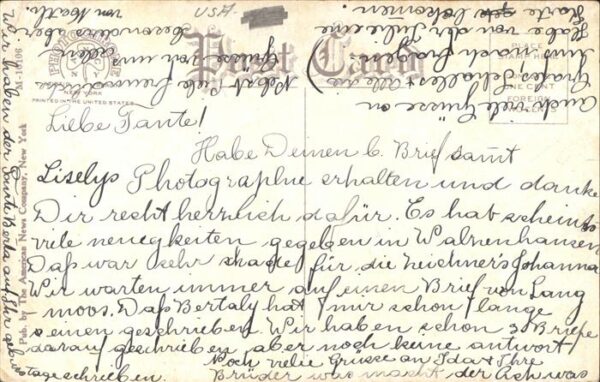 USA.
Post Card
PLACE
STAMP HERE
ONE CENT
FOREIGN
NEW YORK
PRINTED IN THE UNITED STATES
M-15106
Pub. by The American News Company, New York
Liebe Tante!
Habe Deinen l. Brief samt
Liselys Photographie erhalten und danke
Dir recht herzlich dafür. Es hab scheints
viele neuigkeiten gegeben in Walzenhausen
Daß war sehr schade für die Johanna
Wir warten immer auf einen Brief von Lang
moos. Daß Bertaly hat mir schon lange
keinen geschrieben. Wir haben schon 3 Briefe
darauf geschrieben aber noch keine antwort
Noch viele Grüsse an Ida & Ihre
Brüder was macht der
Auch viele Grüsse an
Habe von der
Karte bekommen.
Nebst
Grüsse von uns allen
besonders aber
von
Wir haben der Tante Berta auf Ihr geburts
tage schrieben.